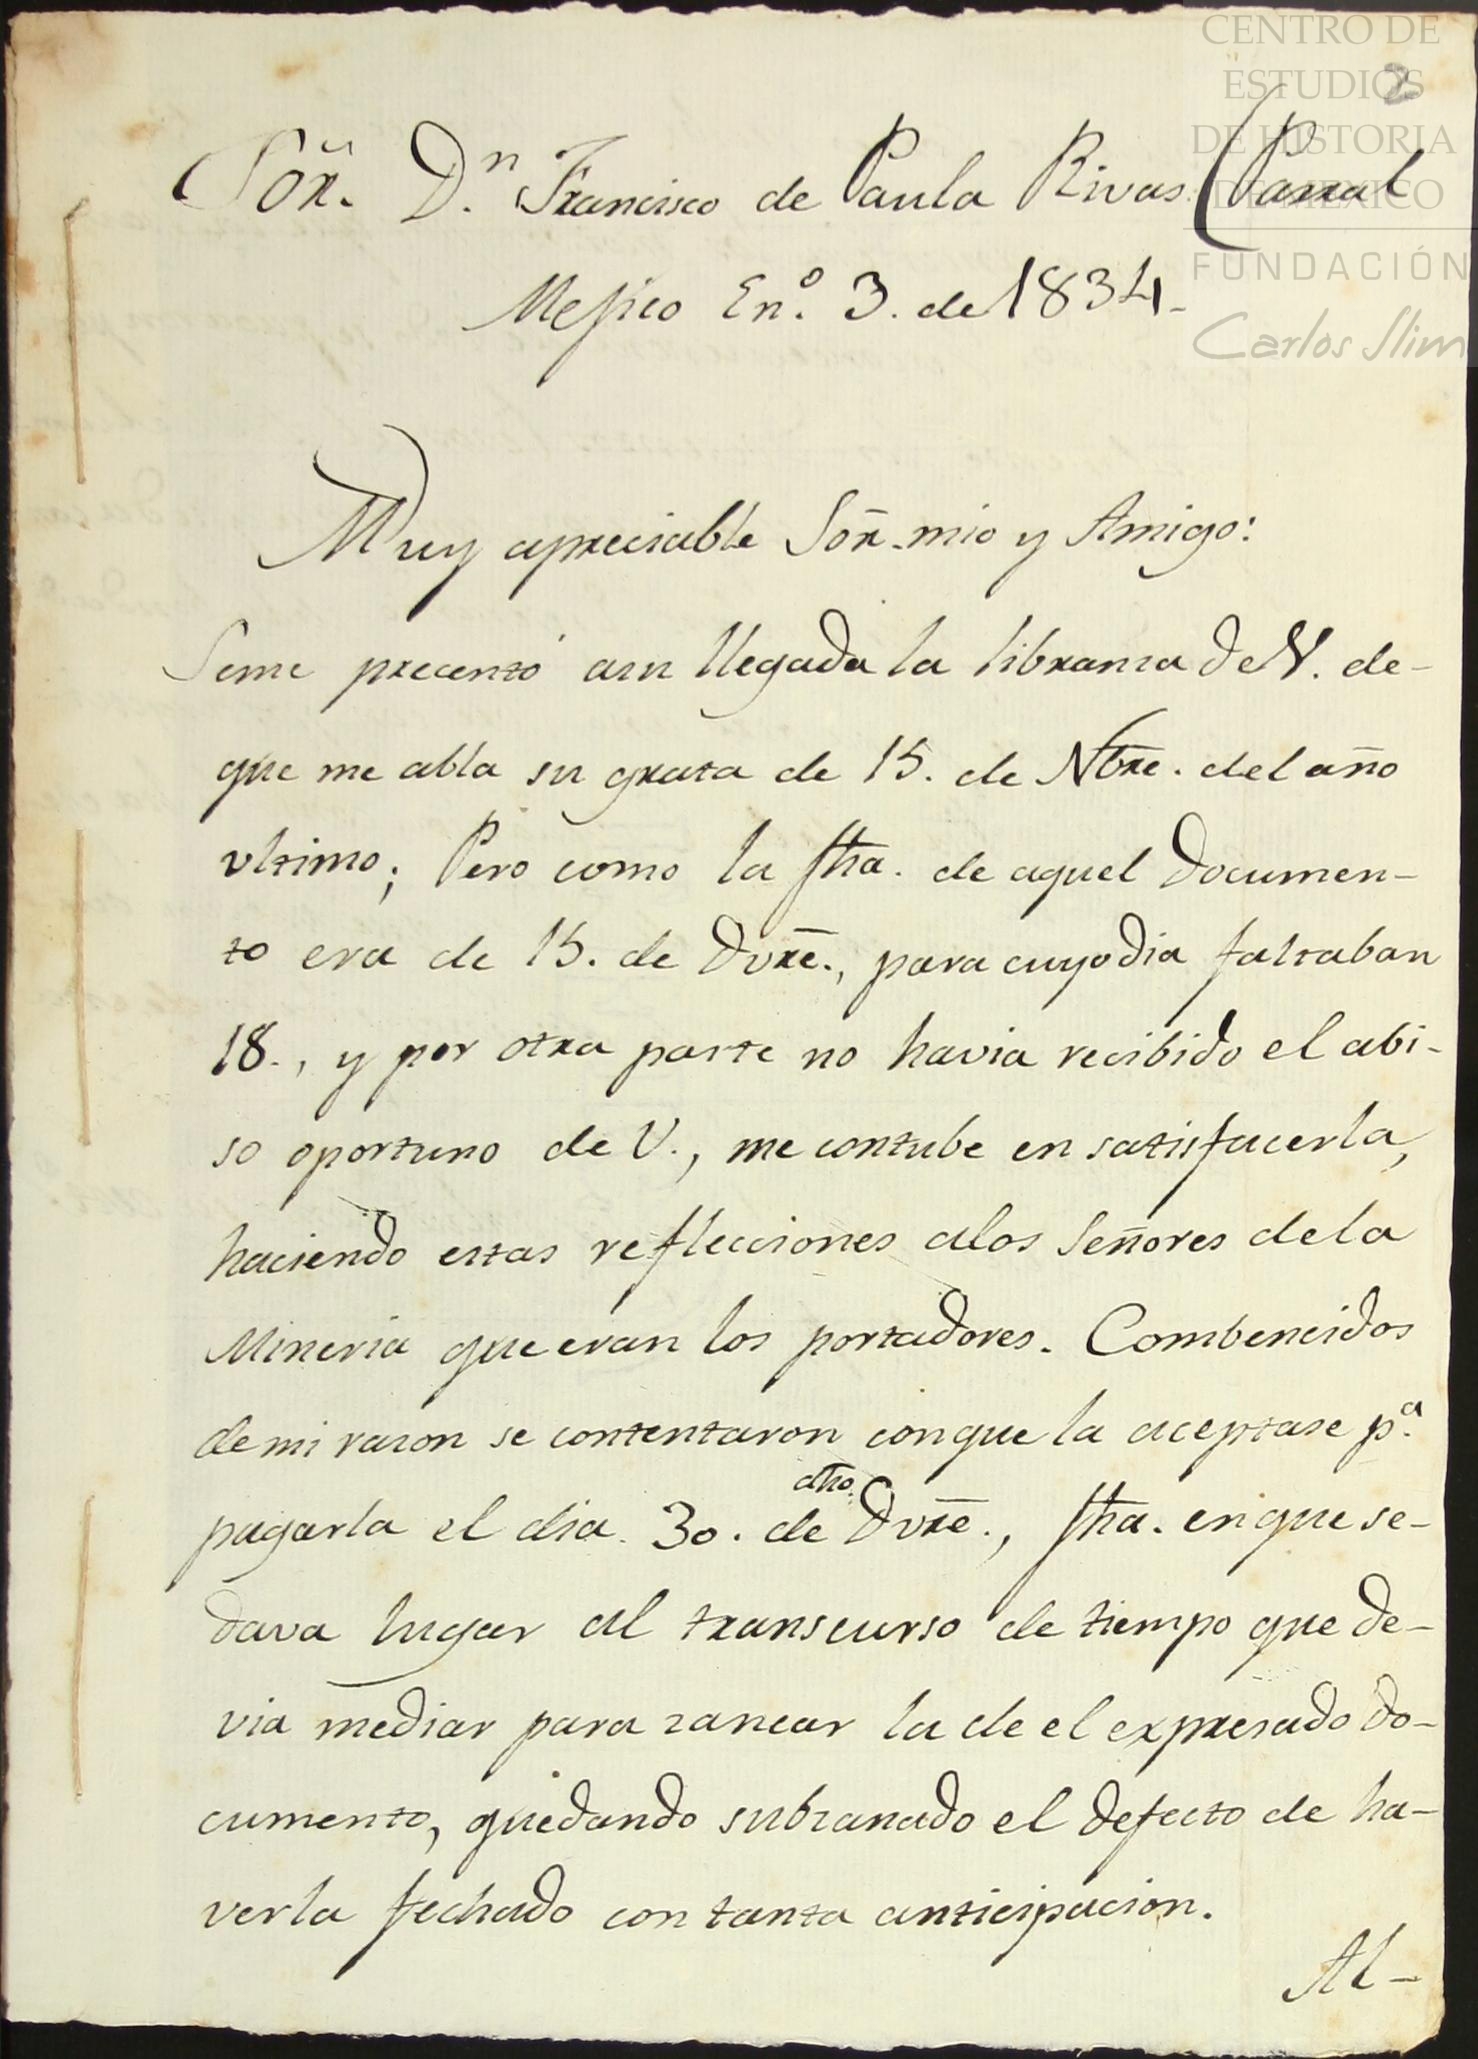 CENTRO DE
ESTUDIOS
DE HISTORIA
DE MEXICO
FUNDACIÓN
Carlos Slim
2
Sõr. D.n Francisco de Paula Rivas (Parral
Mejico En.o 3. de 1834-
Muy apreciable Sõr. mio y Amigo:
Seme precentó asu llegada la libranza de V. de-
que me abla su grata de 15. de Nbre. del año
vltimo; Pero como la fha. de aquel documen-
to era de 15. de Dvre., para cuyo dia faltaban
18., y por otra parte no havia recibido el abi-
so oportuno de V., me contube en satisfacerla,
haciendo estas reflecciones alos Señores dela
Mineria que eran los portadores. Combencidos
demi razon se contentaron conque la aceptase p.a
pagarla el dia 30. de dho. Dvre., fha. enque se-
dava lugar al transcurso de tiempo que de-
via mediar para zanear la de el expresado do-
cumento, quedando subzanado el defecto de ha-
verla fechado con tanta anticipacion.
Al-